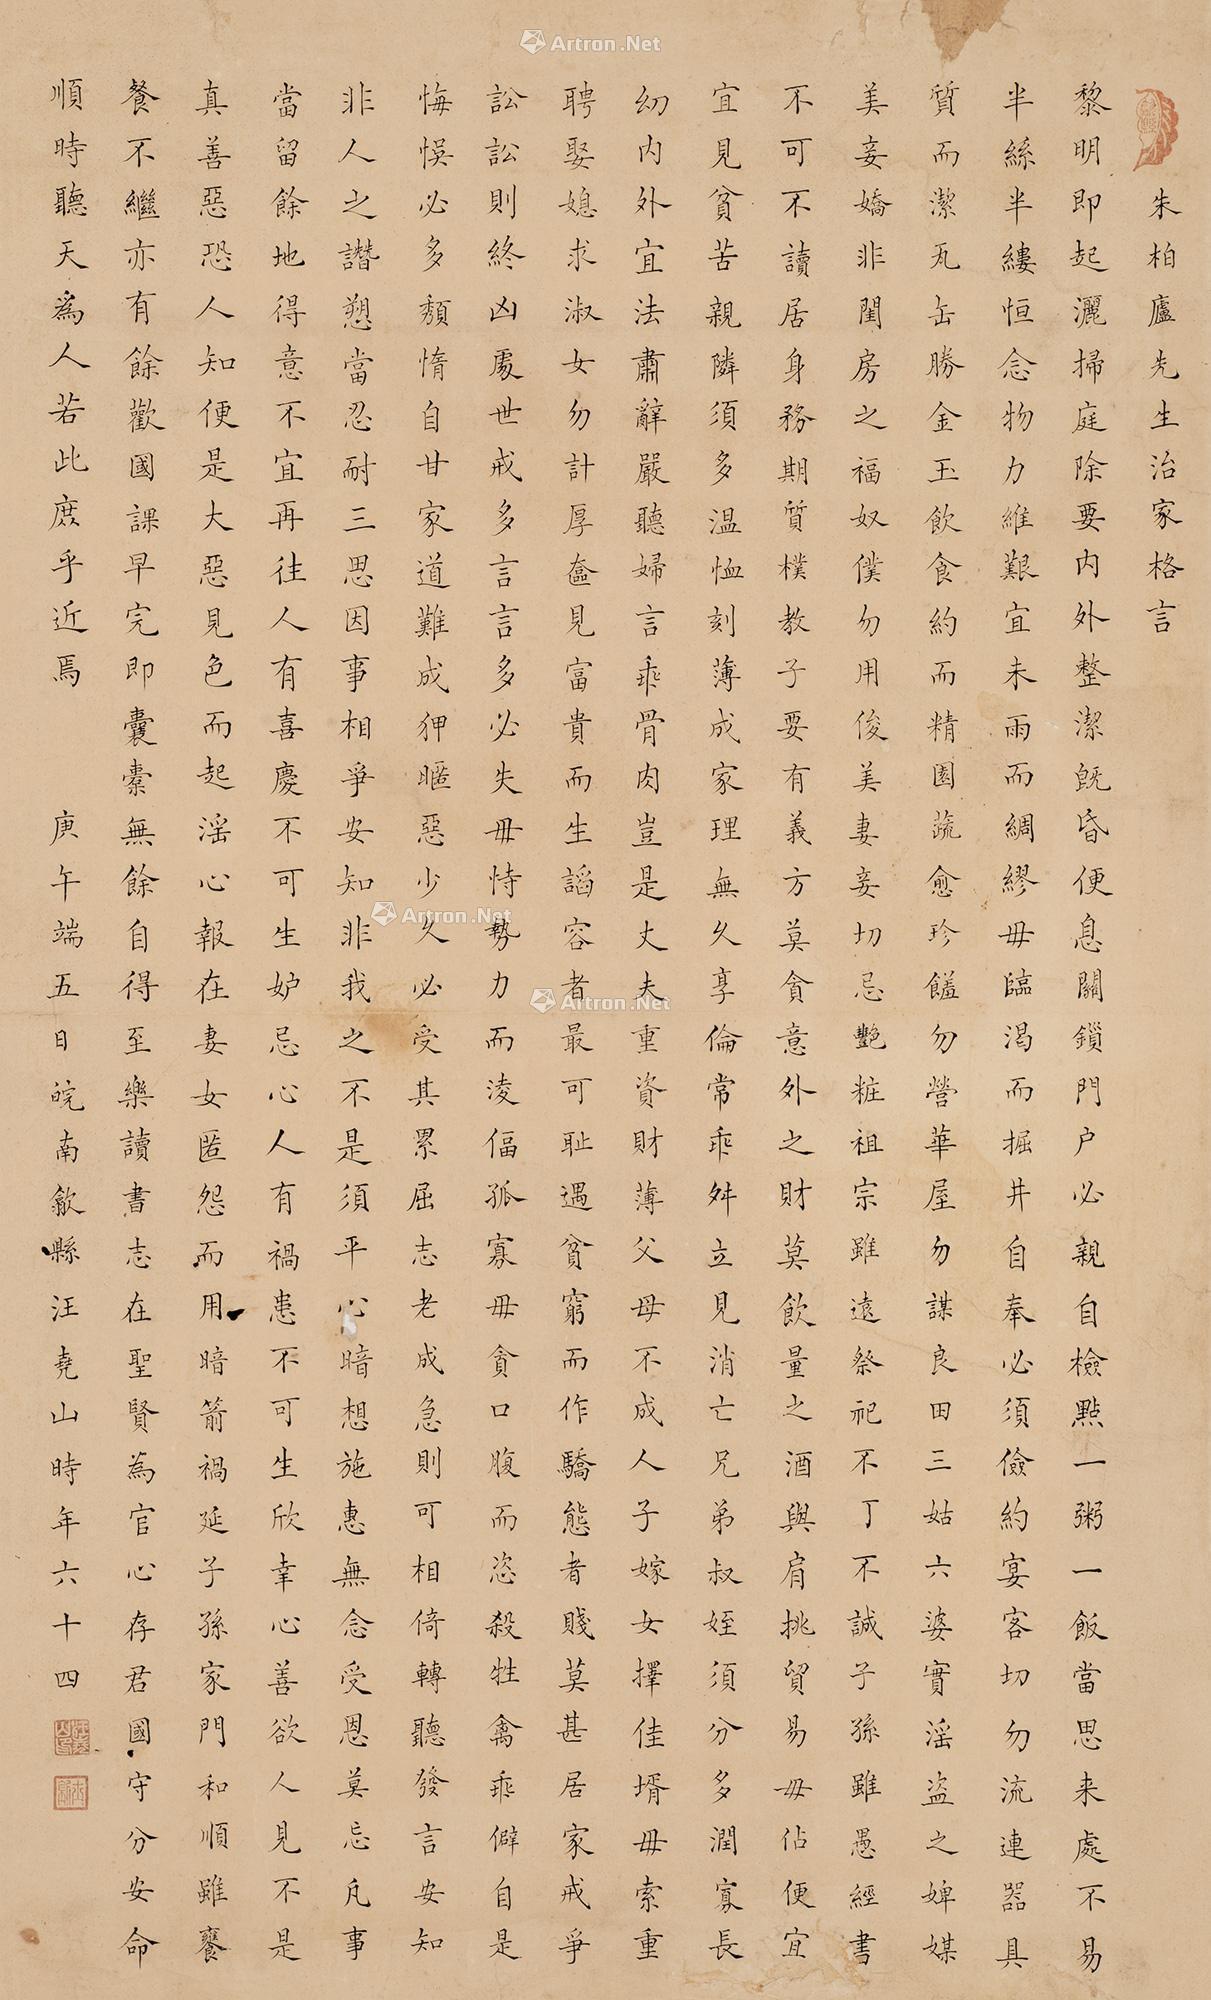 朱柏廬先生治家格言
黎明即起灑掃庭除要内外整潔旣昏便息關鎖門户必親自檢點一粥一飯當思来處不易
半絲半縷恒念物力維艱宜未雨而綢繆毋臨渴而掘井自奉必須儉約宴客切勿流連器具
質而潔瓦缶勝金玉飲食約而精園蔬愈珍饈勿營華屋勿謀良田三姑六婆實淫盗之婢媒
美妾嬌非閨房之福奴僕勿用俊美妻妾切忌艷粧祖宗雖遠祭祀不丁不誠子孫雖愚經書
不可不讀居身務期質樸教子要有義方莫貪意外之財莫飲量之酒與肩挑貿易毋佔便宜
宜見貧苦親隣須多温恤刻薄成家理無久享倫常乖舛立見消亡兄弟叔姪須分多潤寡長
幼内外宜法肅辭嚴聽婦言乖骨肉豈是丈夫重資財薄父母不成人子嫁女擇佳壻毋索重
聘娶媳求淑女勿計厚奩見富貴而生諂容者最可耻遇貧窮而作驕態者賤莫甚居家戒爭
訟訟則終凶處世戒多言言多必失毋恃勢力而淩偪孤寡毋貪口腹而恣殺牲禽乖僻自是
悔悞必多頽惰自甘家道難成狎暱惡少久必受其累屈志老成急則可相倚轉聽發言安知
非人之譖愬當忍耐三思因事相爭安知非我之不是須平心暗想施惠無念受恩莫忘凡事
當留餘地得意不宜再往人有喜慶不可生妒忌心人有禍患不可生欣幸心善欲人見不是
真善惡恐人知便是大惡見色而起淫心報在妻女匿怨而用暗箭禍延子孫家門和順雖饔
餐不繼亦有餘歡國課早完即囊橐無餘自得至樂讀書志在聖賢為官心存君國守分安命
順時聽天爲人若此庶乎近焉　庚午端五日皖南歙縣汪堯山時年六十四
Artron.Net
Artron.Net
Artron.Net